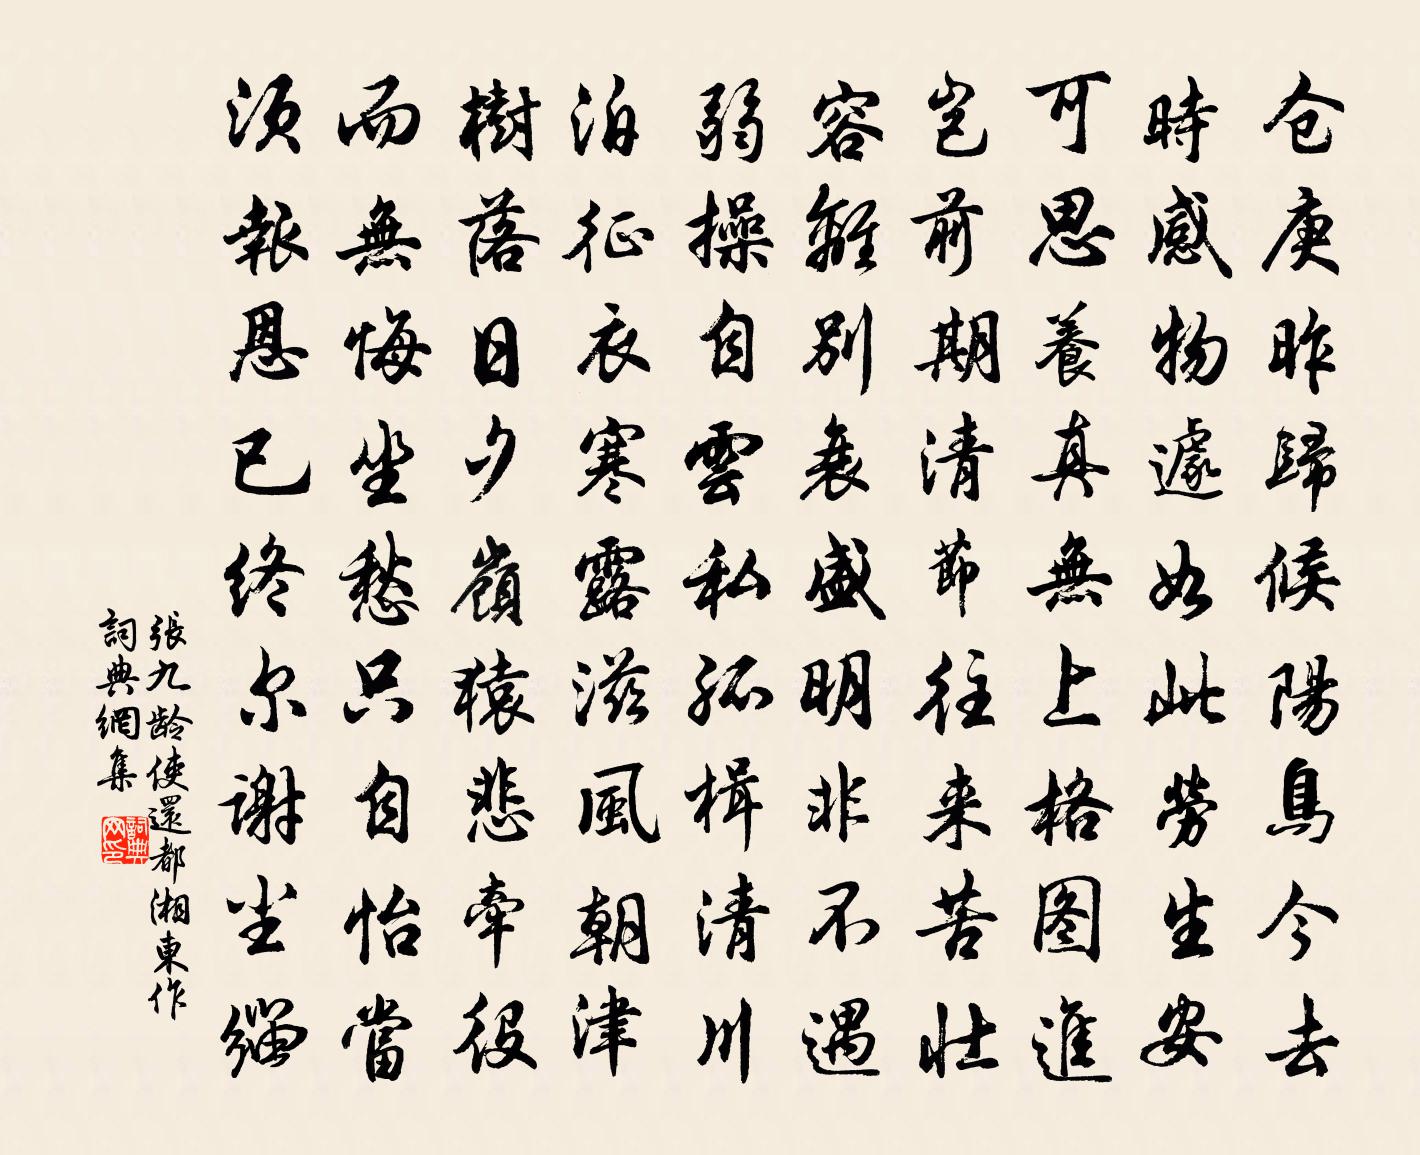 仓庚昨歸候陽鳥今去
時感物遽如此勞生安
可思養真無上格图進
岂前期清節往来苦壮
容離別衰盛明非不遇
弱操自雲私孤楫清川
泊征衣寒露滋風朝津
樹落日夕嶺猿悲牽役
而無悔坐愁只自怡當
须報恩已终尔谢尘缁
張九龄使還都湘東作
詞典網集
詞典网印